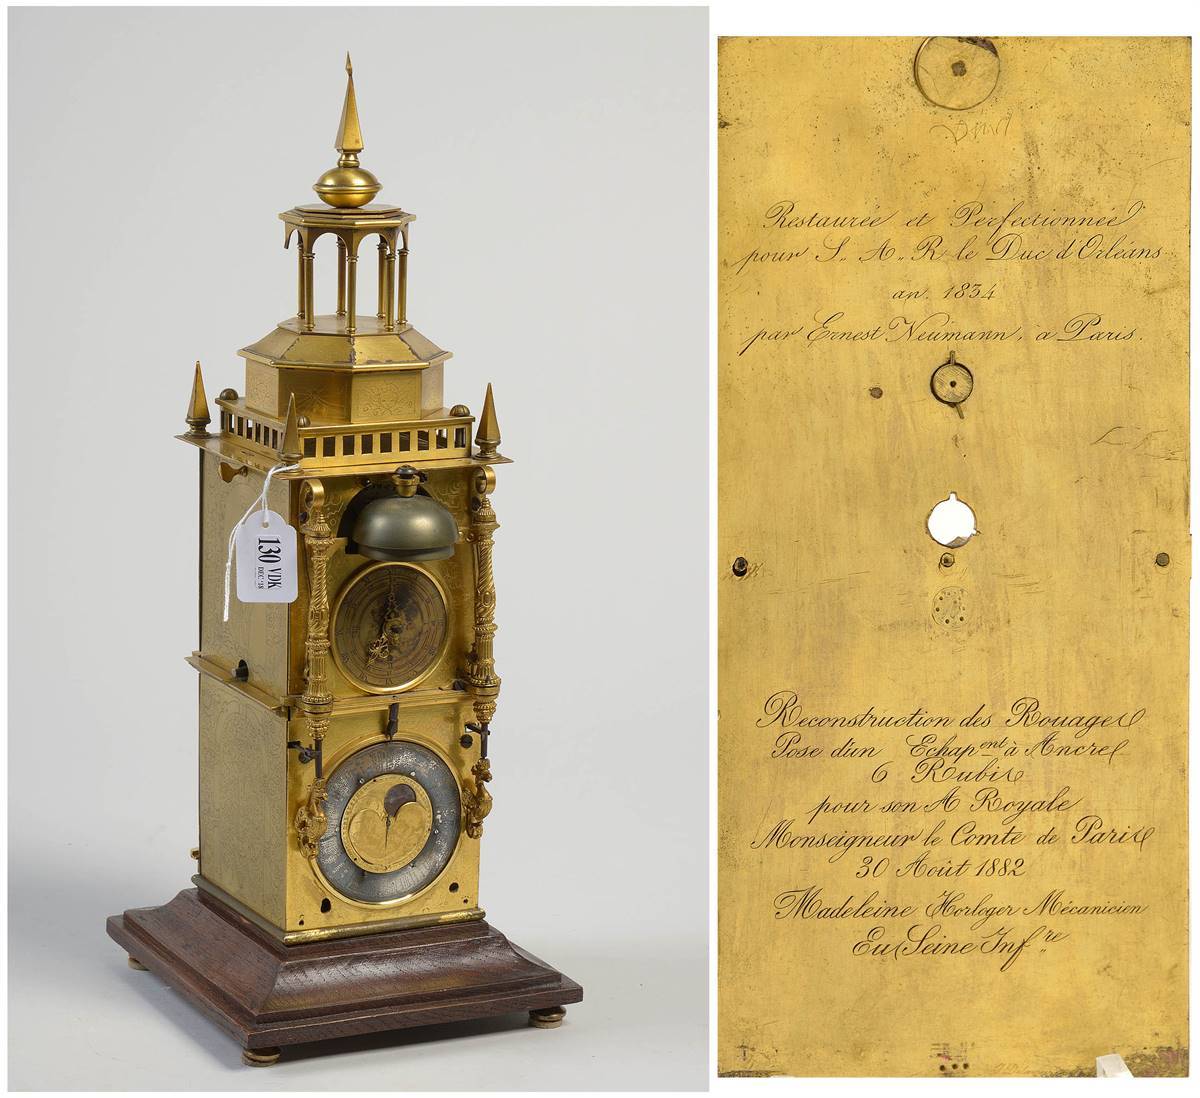 130 VDK
DEC.-18
Restaurée et Perfectionnée
pour S. A. R le Duc d'Orléans
an. 1834
par Ernest Neumann, a Paris.
Reconstruction des Rouages
Pose d'un Echap.ent à Ancres
6 Rubis
pour son A Royale
Monseigneur le Comte de Paris
30 Août 1882
Madeleine Horloger Mécanicien
Eu Seine Inf.re